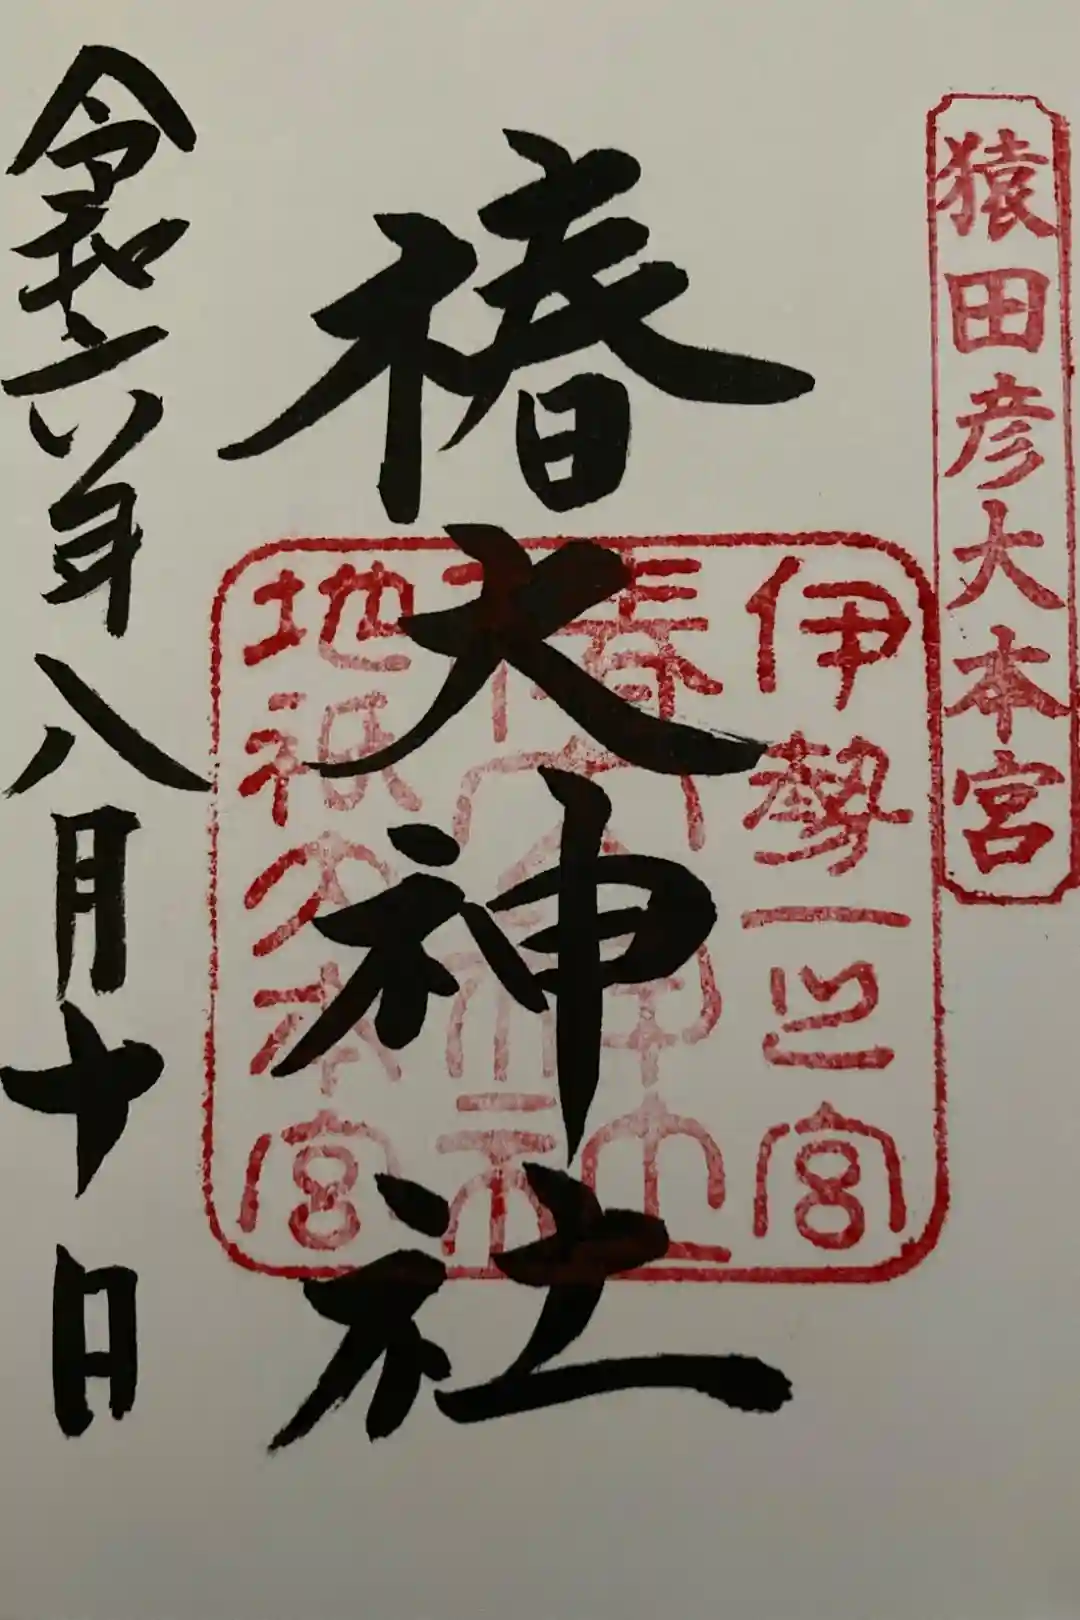 猿田彦大本宮
椿大神社
伊勢一之宮
椿大神社
地祇大本宮
令和六年八月十日